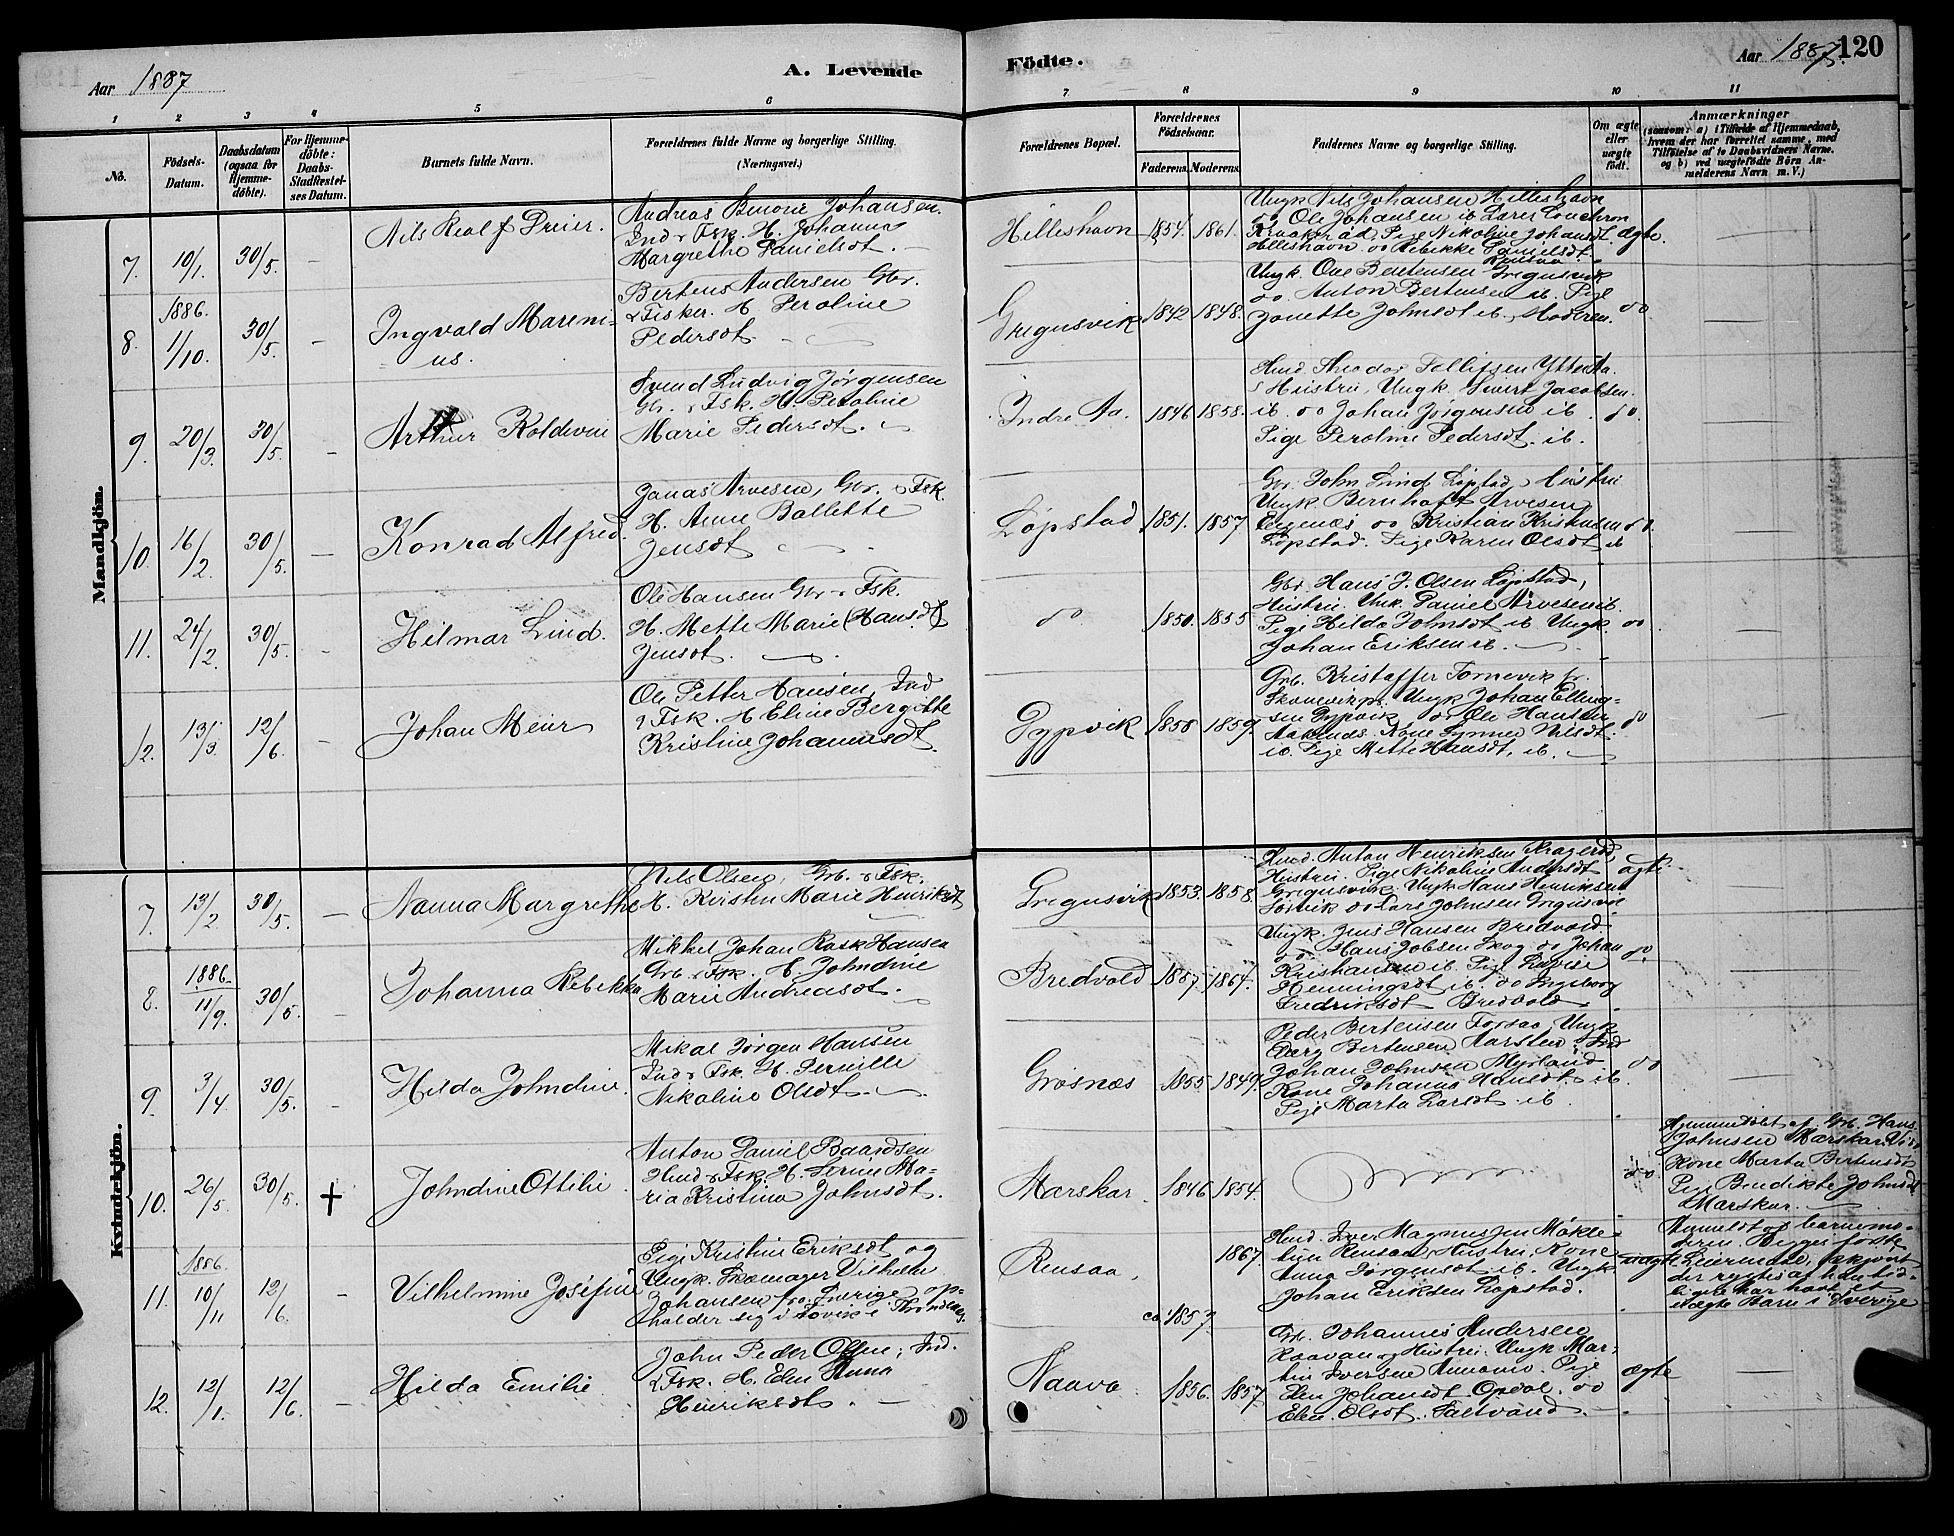 Aar 1887
A. Levende
Födte.
Aar 1887.
120
1 2 3 4 5 6 7 8 9 10 11
No.
Födsels-Datum.
Daabsdatum (ogsaa for Hjemme-döbte).
For Hjemme-döbte: Daabs-Stadfæstel-ses Datum.
Barnets fulde Navn.
Forældrenes fulde Navne og borgerlige Stilling.
(Næringsvei.)
Forældrenes Bopæl.
Forældrenes Födselsaar.
Faderens. Moderens.
Faddernes Navne og borgerlige Stilling.
Om ægte eller uægte födt.
Anmærkninger
(saasom: a) i Tilfælde af Hjemmedaab, hvem der har forrettet samme, med Tilföielse af to Daabsvidners Navne. og b) ved uægtefödte Börn Anmelderens Navn m. V.)
Mandkjön.
7. 10/1. 30/5. –
Nils Realf Dreier.
Andreas Benone Johansen.
Ind & Fsk. H. Johanna
Margrethe Danielsdt.
Hilleshavn 1854. 1861.
Ungk Nils Johansen Hilleshavn
do Ole Johansen ib
Pige Nikoline Johansdt.
Hilleshavn do Rebikke Danielsdt.
ægte.
8. 1886. 1/10. 30/5. –
Ingvald Mareni-
us.
Bertens Andersen Gbr.
& Fisker. H. Peroline
Pedersdt
Gregusvik 1842 1848.
Ungk. Ove Bertensen Gregusvik
do. Anton Bertensen ib. Pige
Jonette Johnsdt ib. Moderen.
do
9. 20/3. 30/5. –
Arthur Koldevin
Svend Ludvig Jørgensen
Gbr. & Fsk. H. Peroline
Marie Pedersdt.
Indre Aa. 1846 1858.
Hmd. Theodor Tellefsen Ytter Aa.
& Hustru, Ungk. Sivert Jacobsen
ib. do Johan Jørgensen ib.
Pige Peroline Pedersdt. ib.
do.
10. 16/2. 30/5. –
Konrad Alfred.
Jonas Arvesen, Gbr. & Fsk.
H. Anne Bollette
Jensdt
Løpstad 1851. 1857
Gbr. John Lind Løpstad & Hustru
Ungk Bernhoft Arvesen
do Kristian Kristiansen
Løpstad. Pige Karen Olsdt ib
do.
11. 24/2. 30/5. –
Hilmar Lind.
Ole Hansen Gbr & Fsk.
H. Mette Marie (Hansdt)
Jensdt.
do. 1850. 1855
Gbr. Hans J. Olsen Løpstad,
Hustru. Unk. Daniel Arvesen ib.
Pige Hilda Johnsdt ib Ungk.
Johan Eriksen ib.
do
12. 13/3. 12/6. –
Johan Meier
Ole Petter Hansen, Ind
& Fsk. H Eline Bergitte
Kristine Johannsdt.
Dypvik 1858 1859.
Grb. Kristoffer Tornevik fr.
Ungk Johan Elling-
sen Dypvik do Ole Hansen
Kone Nilsdt.
ib. Pige Mette Hansdt, ib.
do
Kvindekjön.
7. 13/2. 30/5. –
Nanna Margrethe
Nils Olsen, Grb. & Fsk.
H. Kirsten Marie Henriksdt
Gregusvik 1853. 1858.
Hmd. Anton Henriksen
Hustru. Pige Nikoline Andersdt
Gregusvik. Ungk Hans Henriksen
Sørvik do Lars Johnsen Gregusvik
ægte.
8. 1886. 11/9. 30/5. –
Johanna Rebekka
Mikkel Johan Rask Hansen
Grb. & Fsk. H. Johndine
Marie Andreasdt.
Bredvold 1857. 1864.
Ungk. Jens Hansen Bredvold.
do. Hans Jobsen Skog do Johan
Kristiansen ib. Pige Lovise
Henningsdt ib. do Ingeborg
Fredriksdt Bredvold
do.
9. 3/4. 30/5. –
Hilda Johndine
Mikal Jørgen Hansen
Ind & Fsk. H. Pernille
Nikoline Olsdt.
Grøsnæs 1855 1849.
Peder Bertensen Forsaa, Ungk
Bertensen Ind
Johan Johnsen Myrland.
Kone Johanna Hansdt. ib.
Pige Marta Larsdt ib.
do
10. 26/5. 30/5. +
Johndine Ottilie
Anton Daniel Baardsen
Hmd & Fsk. H. Serine Ma-
ria Kristina Johnsdt.
Marskar. 1846 1854.
do.
Hjemmedøbt af Grb. Hans
Johnsen Marskar.
Kone Marta Bertensdt
Pige Bendikte Johnsdt
Marskar.
11. 1886. 10/11. 12/6. –
Vilhelmine Josefine
Pige Kristine Eriksdt og
Ungk. Skomager Vilhelm
Johansen fra Sverige op-
holder sig i Tovik i Throndenes
Rensaa, ca. 1857. 1867.
Hmd. Iver Magnussen
Rensaa, Hustru, Kone
Anna Jørgensdt ib. Ungk
Johan Eriksen Løpstad.
uægte
Anmeldt af barnemo-
deren. Begges første
Leiermaal, skjønt
der rygtes at han tid-
ligere har havt et
uægte Barn i Sverige
12. 12/1. 12/6. –
Hilda Emilie
John Peder Olsen, Ind.
& Fsk. H. Elen Anna
Henriksdt.
Naava 1856. 1857
Grb. Johannes Andersen
Raavan og Hustru. Ungk Mar-
tin Iversen Pige
Elen Johansdt Opdal. do
Elen Olsdt. Saltvand
ægte